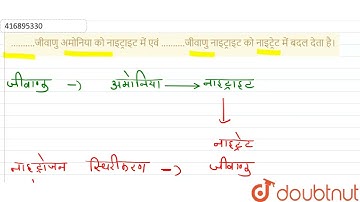 416895330
...........जीवाणु अमोनिया को नाइट्राइट में एवं ...........जीवाणु नाइट्राइट को नाइट्रेट में बदल देता है।
जीवाणु -> अमोनिया -> नाइट्राइट
नाइट्रेट
नाइट्रोजन स्थिरीकरण -> जीवाणु
doubtnut